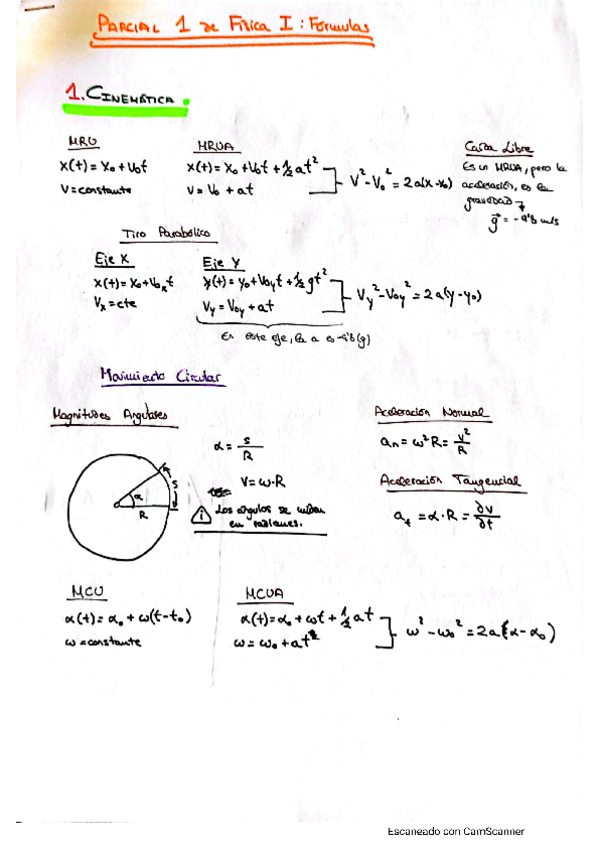 PARCIAL 1 de Física I: Fórmulas
1. CINEMÁTICA.
MRU
x(t) = x₀ + v₀t
v = constante
MRUA
x(t) = x₀ + v₀t + ½ at²
v = v₀ + at
v² - v₀² = 2a(x - x₀)
Caída Libre
Es un MRUA, pero la
aceleración, es la
gravedad →
g⃗ = -9'8 m/s
Tiro Parabólico
Eje X
x(t) = x₀ + v₀ₓt
vₓ = cte
Eje Y
y(t) = y₀ + v₀yt + ½ gt²
Vy = V₀y + at
Vy² - V₀y² = 2a(y - y₀)
En este eje, la a es -9'8 (g)
Movimiento Circular
Magnitudes Angulares
α
S
R
α = s/R
v = ω·R
Los ángulos se miden
en radianes.
Aceleración Normal
aₙ = ω²R = v²/R
Aceleración Tangencial
aₜ = α·R = ∂v/∂t
MCU
α(t) = α₀ + ω(t - t₀)
ω = constante
MCUA
α(t) = α₀ + ωt + ½ at
ω = ω₀ + at
ω² - ω₀² = 2a(α - α₀)
Escaneado con CamScanner